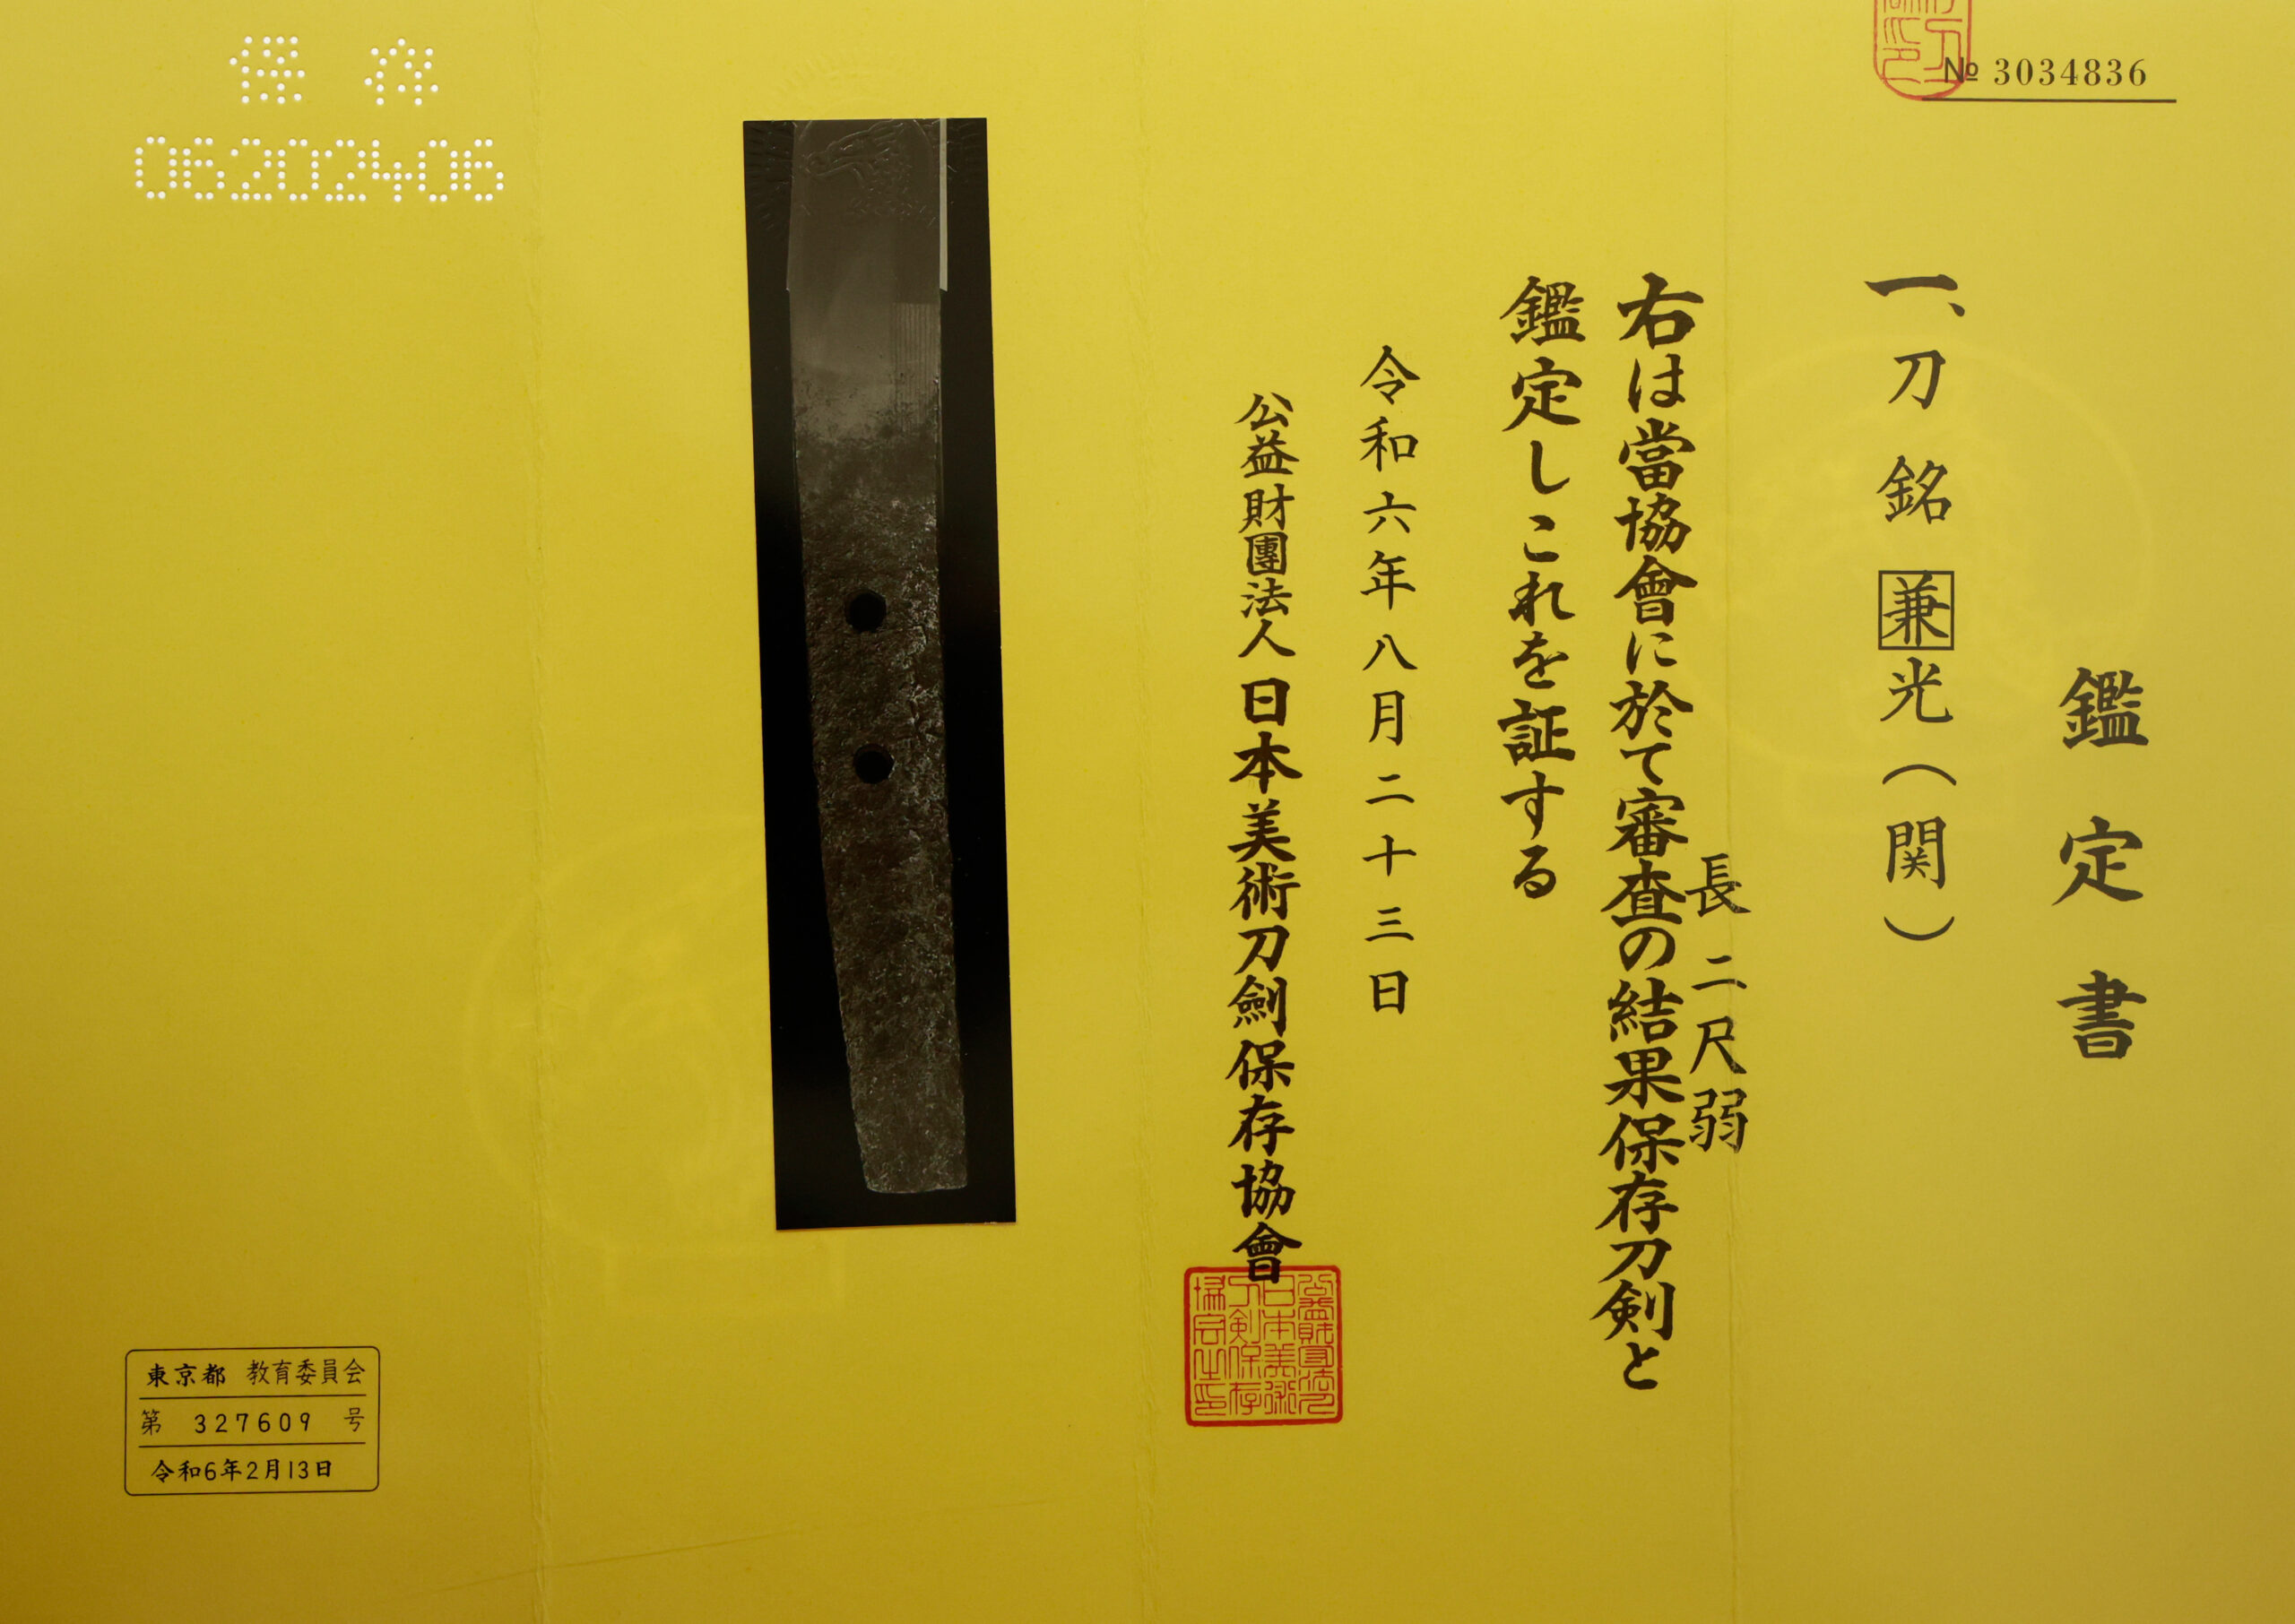 № 3034836
鑑定書
一、刀 銘 兼光(関)
長 二尺弱
右は當協會に於て審査の結果保存刀剣と
鑑定しこれを証する
令和六年八月二十三日
公益財團法人 日本美術刀劍保存協會
公益財団法人
日本美術
刀剣保存
協会之印
保存
06202406
東京都 教育委員会
第 327609 号
令和6年2月13日